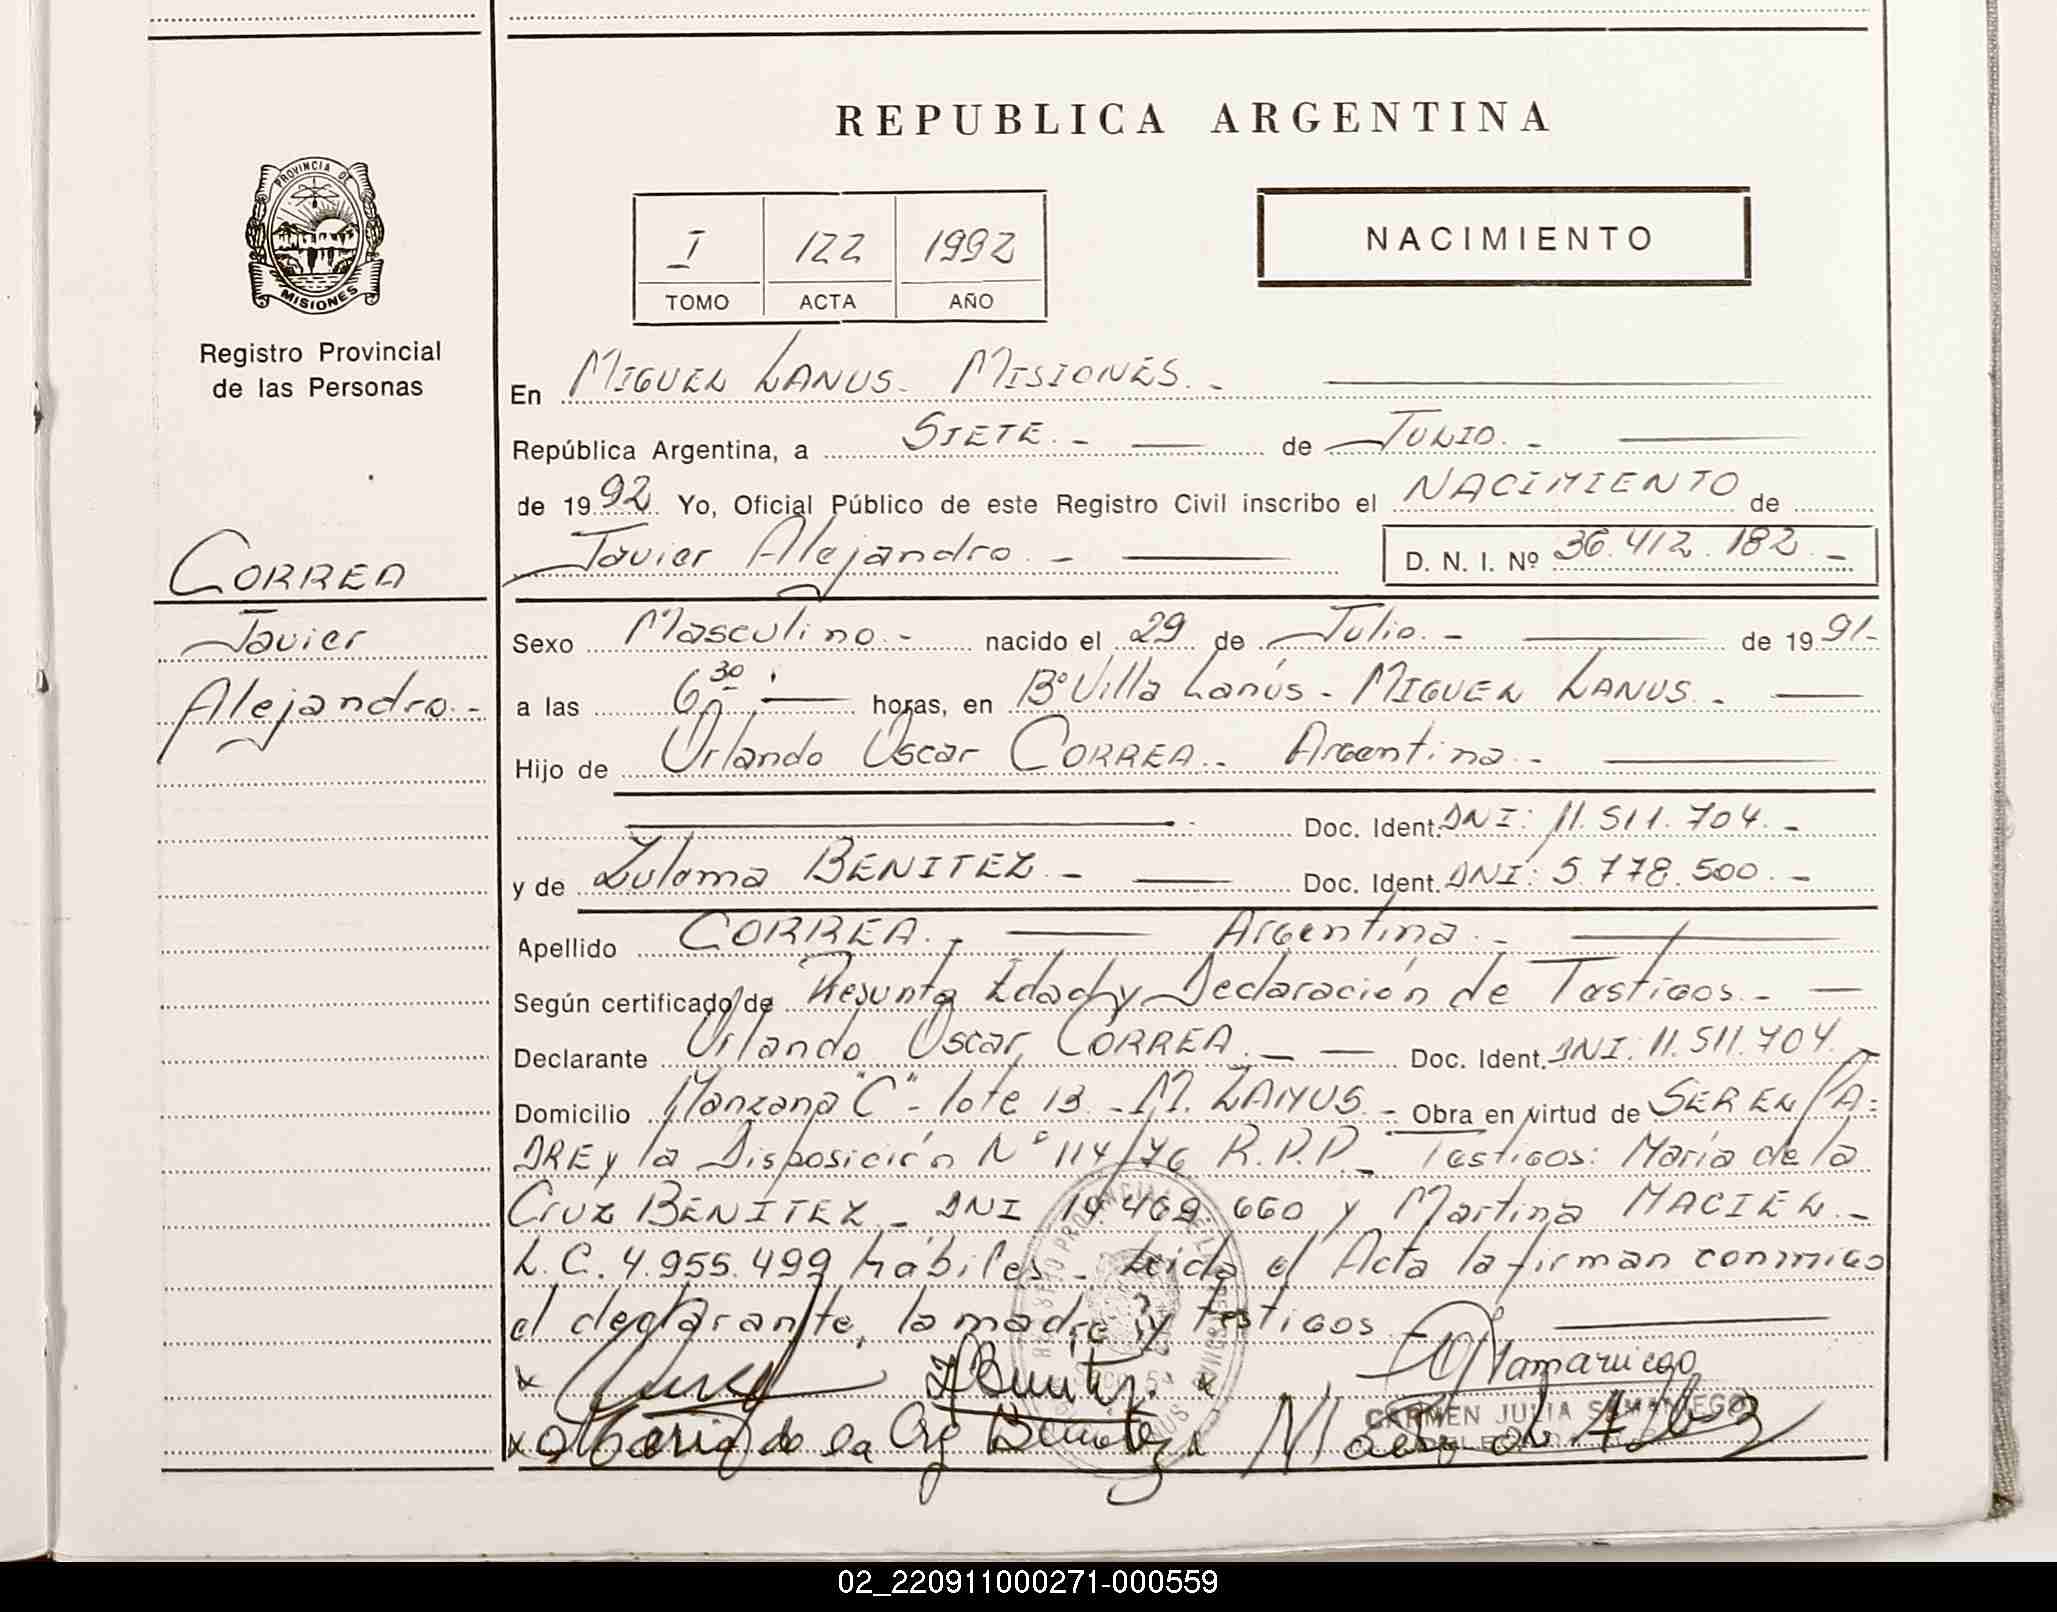 REPUBLICA ARGENTINA
PROVINCIA DE
MISIONES
Registro Provincial
de las Personas
I 122 1992
TOMO ACTA AÑO
NACIMIENTO
En MIGUEL LANUS. MISIONES.-
República Argentina, a SIETE.- de JULIO.-
de 1992. Yo, Oficial Público de este Registro Civil inscribo el NACIMIENTO de
Javier Alejandro.- D. N. I. Nº 36.412.182.-
CORREA
Javier
Alejandro.-
Sexo Masculino.- nacido el 29 de Julio.- de 1991-
a las 6 30 horas, en Bº Villa Lanús - MIGUEL LANUS.-
Hijo de Orlando Oscar CORREA.- Argentina.-
Doc. Ident. DNI: 11.511.704.-
y de Zulema BENITEZ.- Doc. Ident. DNI: 5.778.500.-
Apellido CORREA.- Argentina.-
Según certificado de Presunta Edad y Declaración de Testigos.-
Declarante Orlando Oscar CORREA.- Doc. Ident. DNI: 11.511.704.-
Domicilio Manzana "C" - lote 13 - M. LANUS.- Obra en virtud de SER EL PA-
DRE y la Disposición Nº 114/76 R.P.P.- Testigos: María de la
Cruz BENITEZ - DNI 14.469.660 y Martina MACIEL.-
L.C. 4.955.499 hábiles - Leida el Acta la firman conmigo
el declarante, la madre y testigos
Z Benitez
Samaniego
CARMEN JULIA SAMANIEGO
x Maria de la Cruz Benitez x
02_220911000271-000559